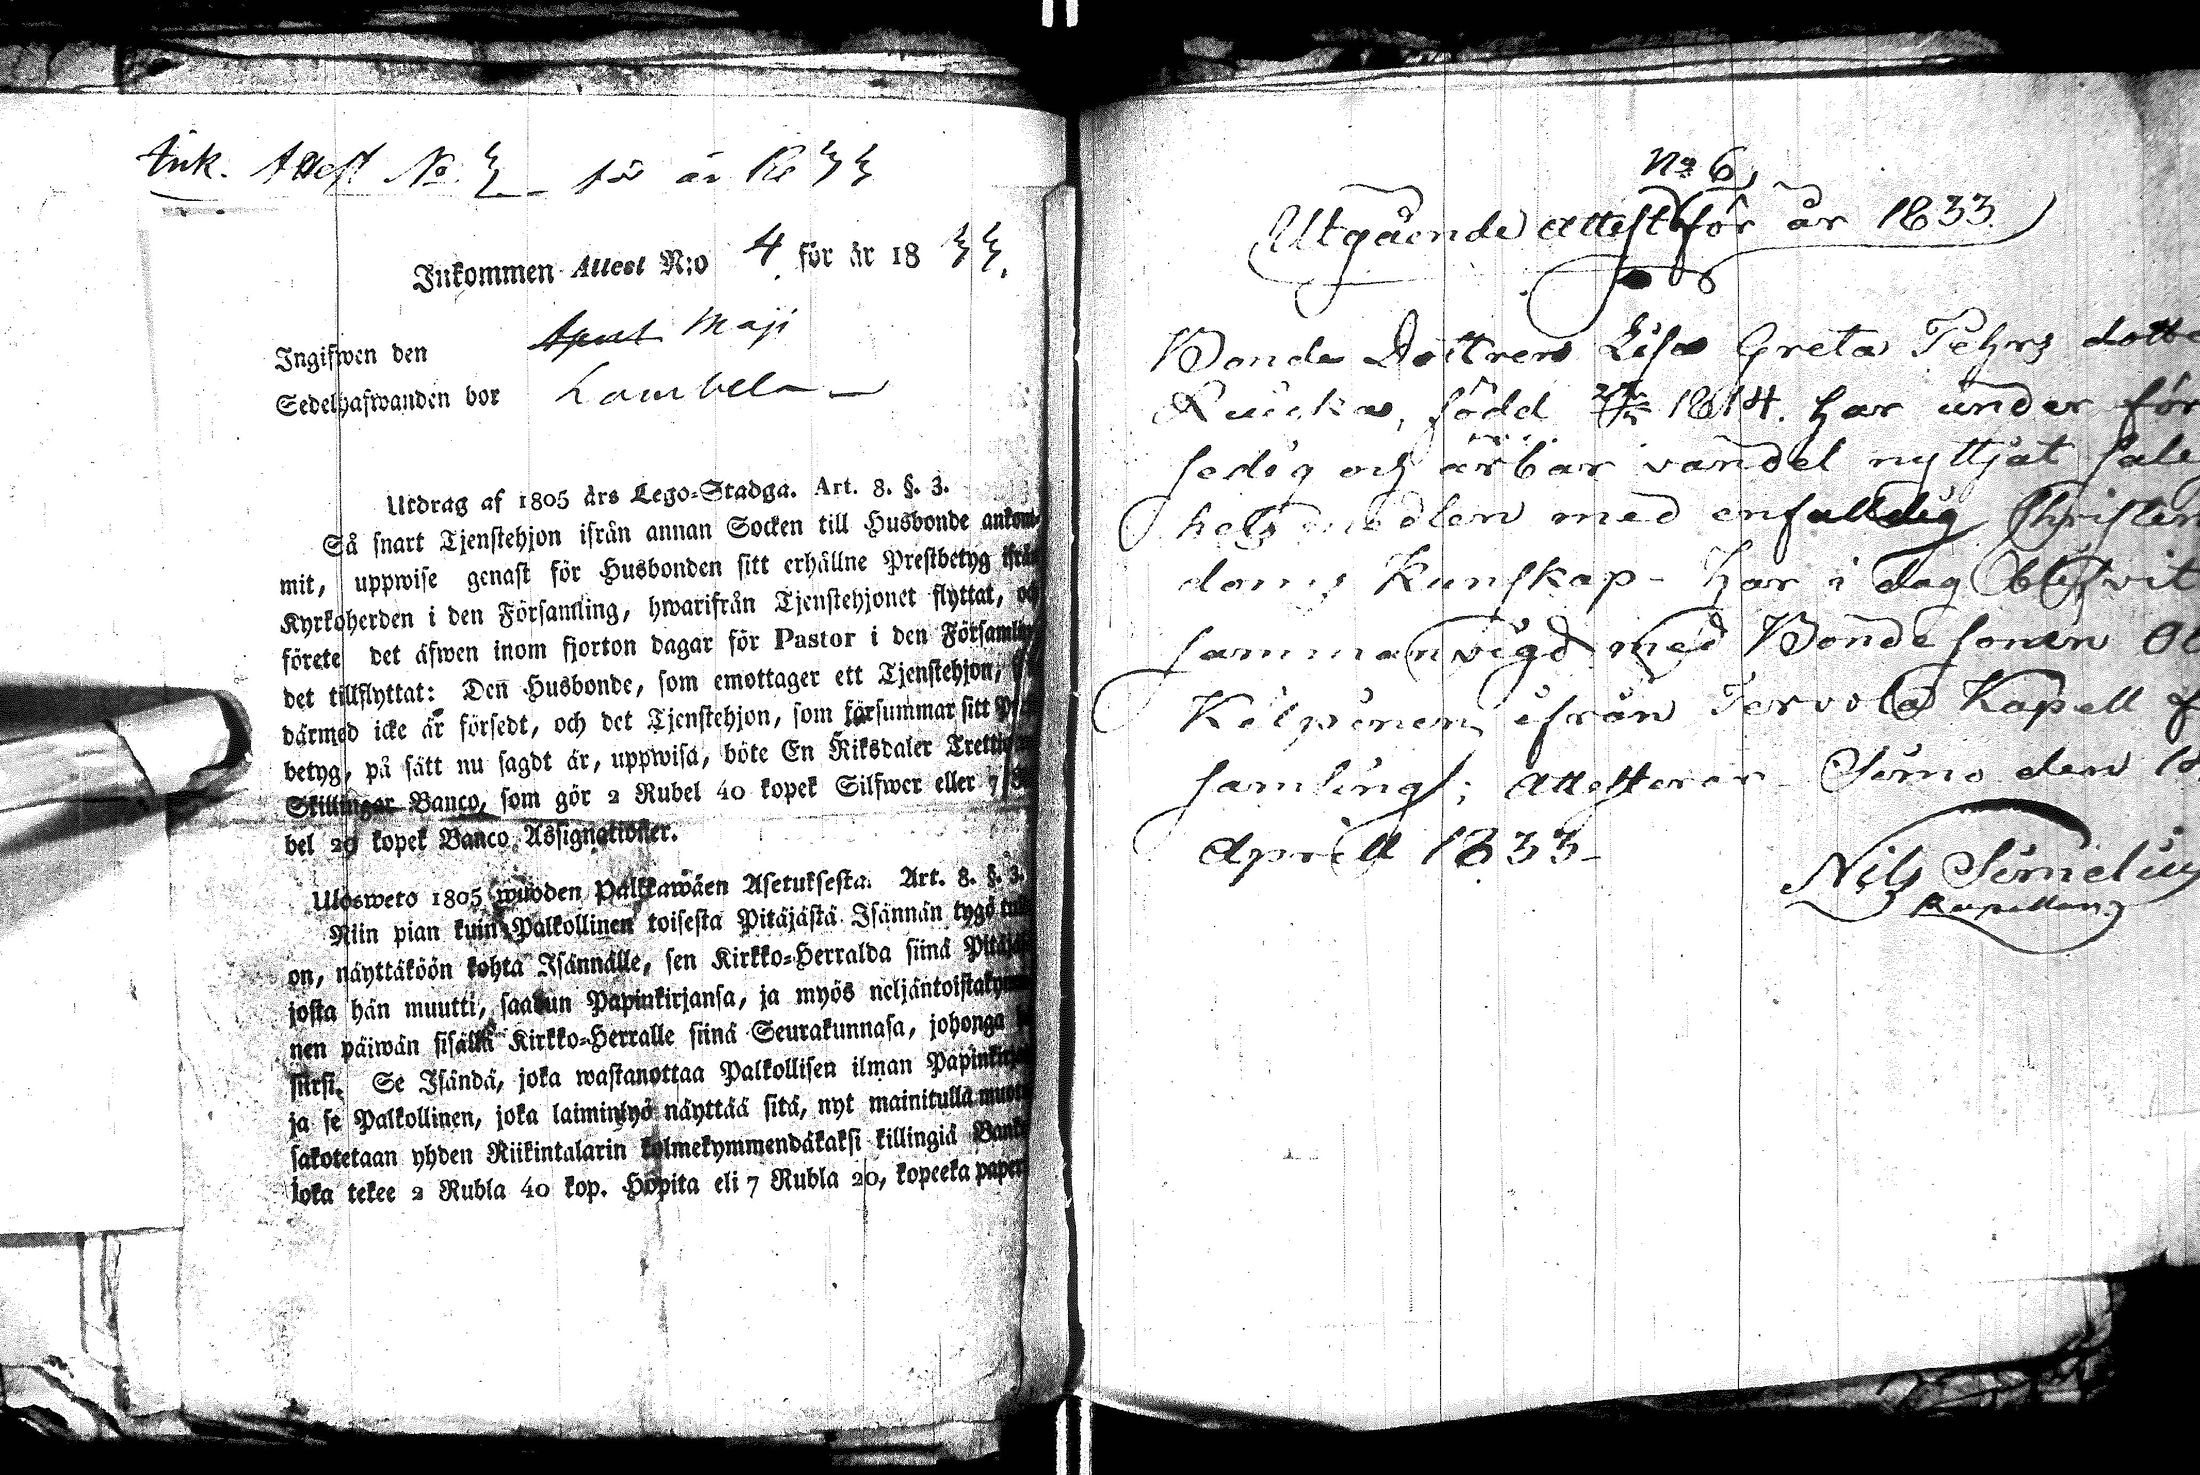 Ink. Attest No. för år 1833
Inkommen Attest N:o 4 för år 1833.
Ingifwen den April Maji
Sedelhafwanden bor
Utdrag af 1805 års Lego-Stadga. Art. 8. §. 3.
Så snart Tjenstehjon ifrån annan Socken till Husbonde ankom-
mit, uppwise genast för Husbonden sitt erhållne Prestbetyg ifrån
Kyrkoherden i den Församling, hwarifrån Tjenstehjonet flyttat, och
förete det äfwen inom fjorton dagar för Pastor i den Församling
det tillflyttat: Den Husbonde, som emottager ett Tjenstehjon,
därmed icke är försedt, och det Tjenstehjon, som försummar sitt
betyg, på sätt nu sagdt är, uppwisa, böte En Riksdaler
Skillingar Banco, som gör 2 Rubel 40 kopek Silfwer eller 7
bel 20 kopek Banco Assignationer.
Ulosweto 1805 wuoden Palkkawäen Asetuksesta. Art. 8. §. 3.
Niin pian kuin Palkollinen toisesta Pitäjästä Isännän tygö
on, näyttäköön kohta Isännälle, sen Kirkko-Herralda siinä
josta hän muutti, saadun Papinkirjansa, ja myös
nen päiwän sisällä Kirkko-Herralle siinä Seurakunnasa, johonga
siirsi. Se Isändä, joka wastanottaa Palkollisen ilman
ja se Palkollinen, joka laiminlyö näyttää sitä, nyt mainitulla
sakotetaan yhden Riikintalarin kolmekymmendäkaksi killingiä
joka tekee 2 Rubla 40 kop. Hopita eli 7 Rubla 20, kopeeka
No 6,
Utgående attest för år 1833.
Bonde Dottren Lisa Greta Pehrs dotte
född 1814. har under för
sedig och ärbar vandel nyttjat salig
hets medlen med enfalldig Christen
doms Kunskap - har i dag blefvit
sammanvigd med Bonde sonen
Kilpinen ifrån Tervola Kapell
samling; attesterar Simo den
April 1833
Nils Simelius
Kapellan